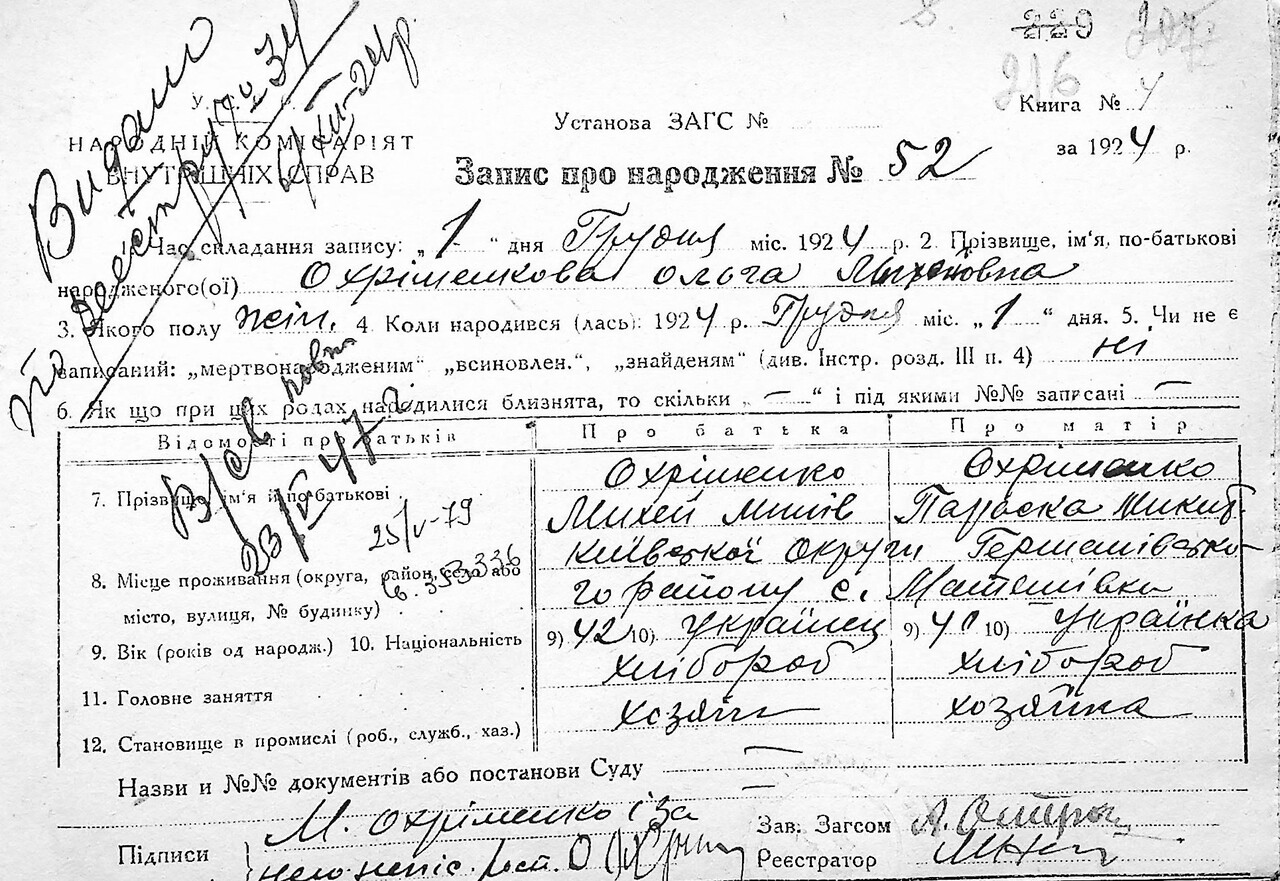 229 227
216
У. С. Р. Р.
НАРОДНІЙ КОМІСАРІЯТ
ВНУТРІШНІХ СПРАВ
Установа ЗАГС №
Книга № 4
за 1924 р.
Запис про народження № 52
Видано
по реєстру
1. Час складання запису: „1“ дня Грудня міс. 1924 р. 2. Прізвище, ім'я, по-батькові
народженого(ої) Охріменкова Ольга Михеївна
3. Якого полу жін. 4. Коли народився (лась): 1924 р. Грудня міс. „1“ дня. 5. Чи не є
записаний: „мертвонародженим“ „всиновлен.“, „знайденям“ (див. Інстр. розд. III п. 4) ні
6. Як що при цих родах народилися близнята, то скільки „—“ і під якими №№ записані —
Відомості про батьків Про батька Про матір
7. Прізвище, ім'я й по-батькові Охріменко Охріменко
Михей Параска
23/IV 47 г.
25/V-79
353336
8. Місце проживання (округа, район, село або Київської Округи Германівсько-
місто, вулиця, № будинку) го району с. Матяшівка
9. Вік (років од народж.) 10. Національність 9) 42 10) Українец 9) 41 10) Українка
11. Головне заняття хлібороб хлібороб
12. Становище в промислі (роб., служб., хаз.) хозяїн хозяйка
Назви и №№ документів або постанови Суду —
М. Охріменко і за
Підписи
Зав. Загсом
Реєстратор